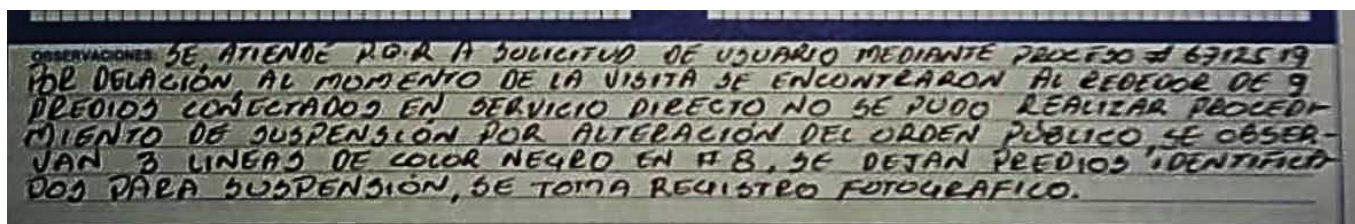 OBSERVACIONES: SE, ATIENDE P.Q.R A SOLICITUD DE USUARIO MEDIANTE PROCESO # 6712519
POR DELACIÓN, AL MOMENTO DE LA VISITA SE ENCONTRARON AL REDEDOR DE 9
PREDIOS CONECTADOS EN SERVICIO DIRECTO NO SE PUDO REALIZAR PROCEDI-
MIENTO DE SUSPENSIÓN POR ALTERACIÓN DEL ORDEN PÚBLICO, SE OBSER-
VAN 3 LINEAS DE COLOR NEGRO EN # 8. SE DEJAN PREDIOS IDENTIFICA
DOS PARA SUSPENSIÓN, SE TOMA REGISTRO FOTOGRAFICO.